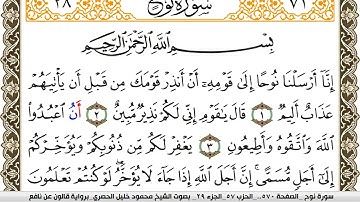 ٢٨ سورة نوح ٧١
بِسْمِ اللَّهِ الرَّحْمَٰنِ الرَّحِيمِ
إِنَّا أَرْسَلْنَا نُوحًا إِلَىٰ قَوْمِهِ أَنْ أَنذِرْ قَوْمَكَ مِن قَبْلِ أَن يَأْتِيَهُمْ
عَذَابٌ أَلِيمٌ ١ قَالَ يَٰقَوْمِ إِنِّي لَكُمْ نَذِيرٌ مُّبِينٌ ٢ أَنُ اعْبُدُوا
اللَّهَ وَاتَّقُوهُ وَأَطِيعُونِ ٣ يَغْفِرْ لَكُم مِّن ذُنُوبِكُمْ وَيُؤَخِّرْكُمْ
إِلَىٰ أَجَلٍ مُّسَمًّى إِنَّ أَجَلَ اللَّهِ إِذَا جَاءَ لَا يُؤَخَّرُ لَوْ كُنتُمْ تَعْلَمُونَ
سورة نوح _ الصفحة ٥٧٠... الحزب ٥٧_ الجزء ٢٩ _ بصوت الشيخ محمود خليل الحصري_ برواية قالون عن نافع